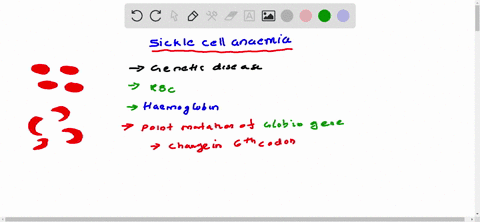 Sickle cell anaemia
→ Genetic disease
→ RBC
→ Haemoglobin
→ Point mutation of Globin gene
→ change in 6th codon